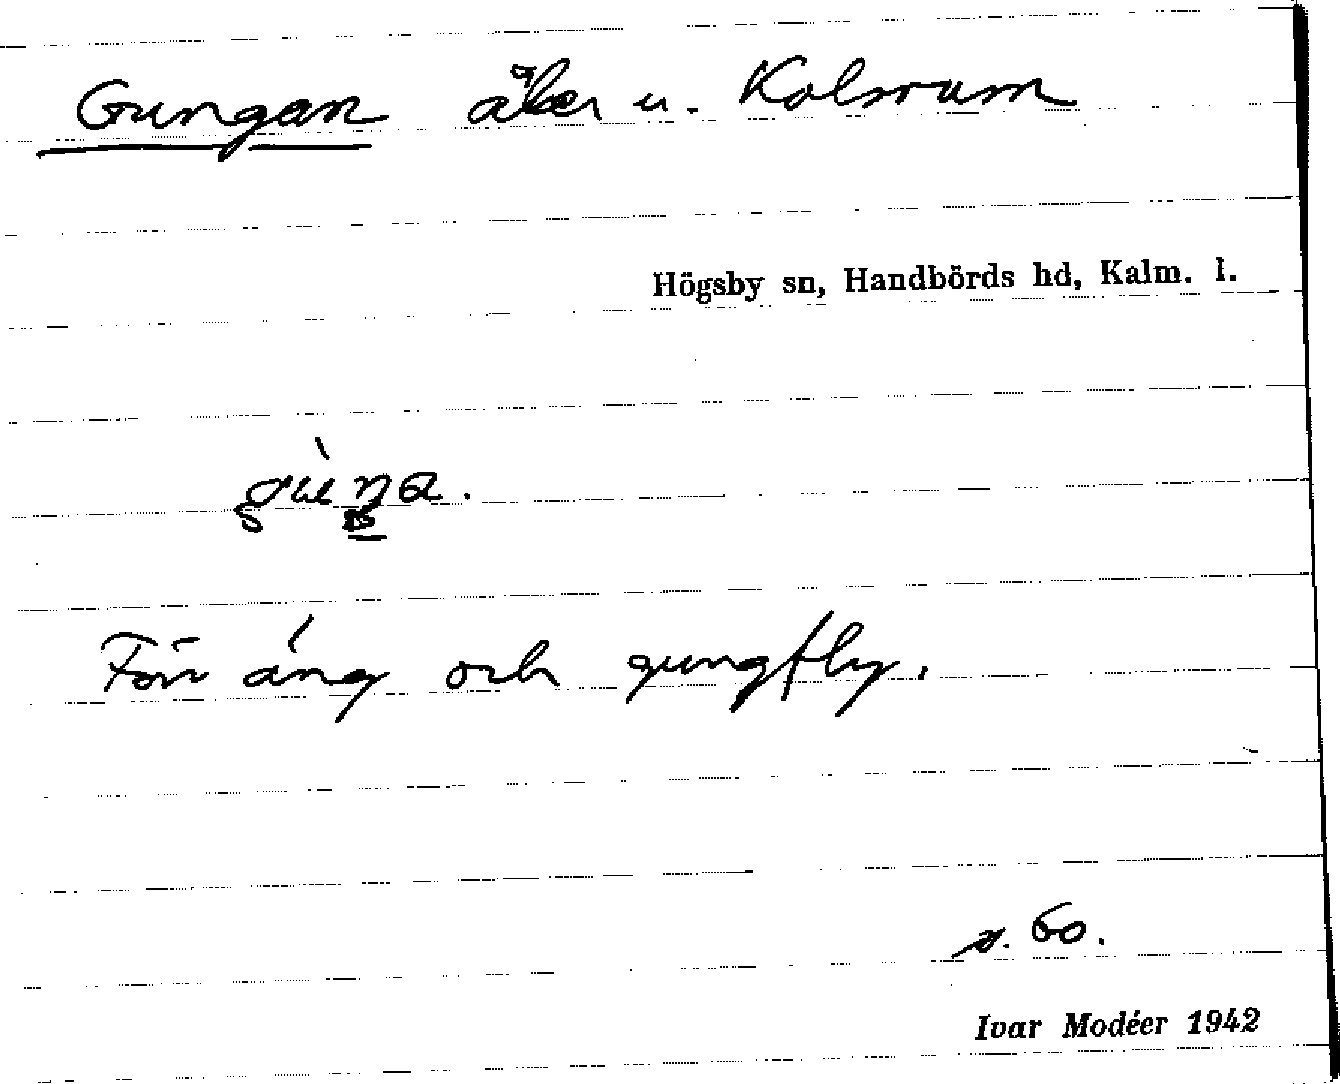 Gungan åker u. Kolsrum
Högsby sn, Handbörds hd, Kalm. l.
gùŋa.
Förr äng och gungfly.
s. 60.
Ivar Modéer 1942